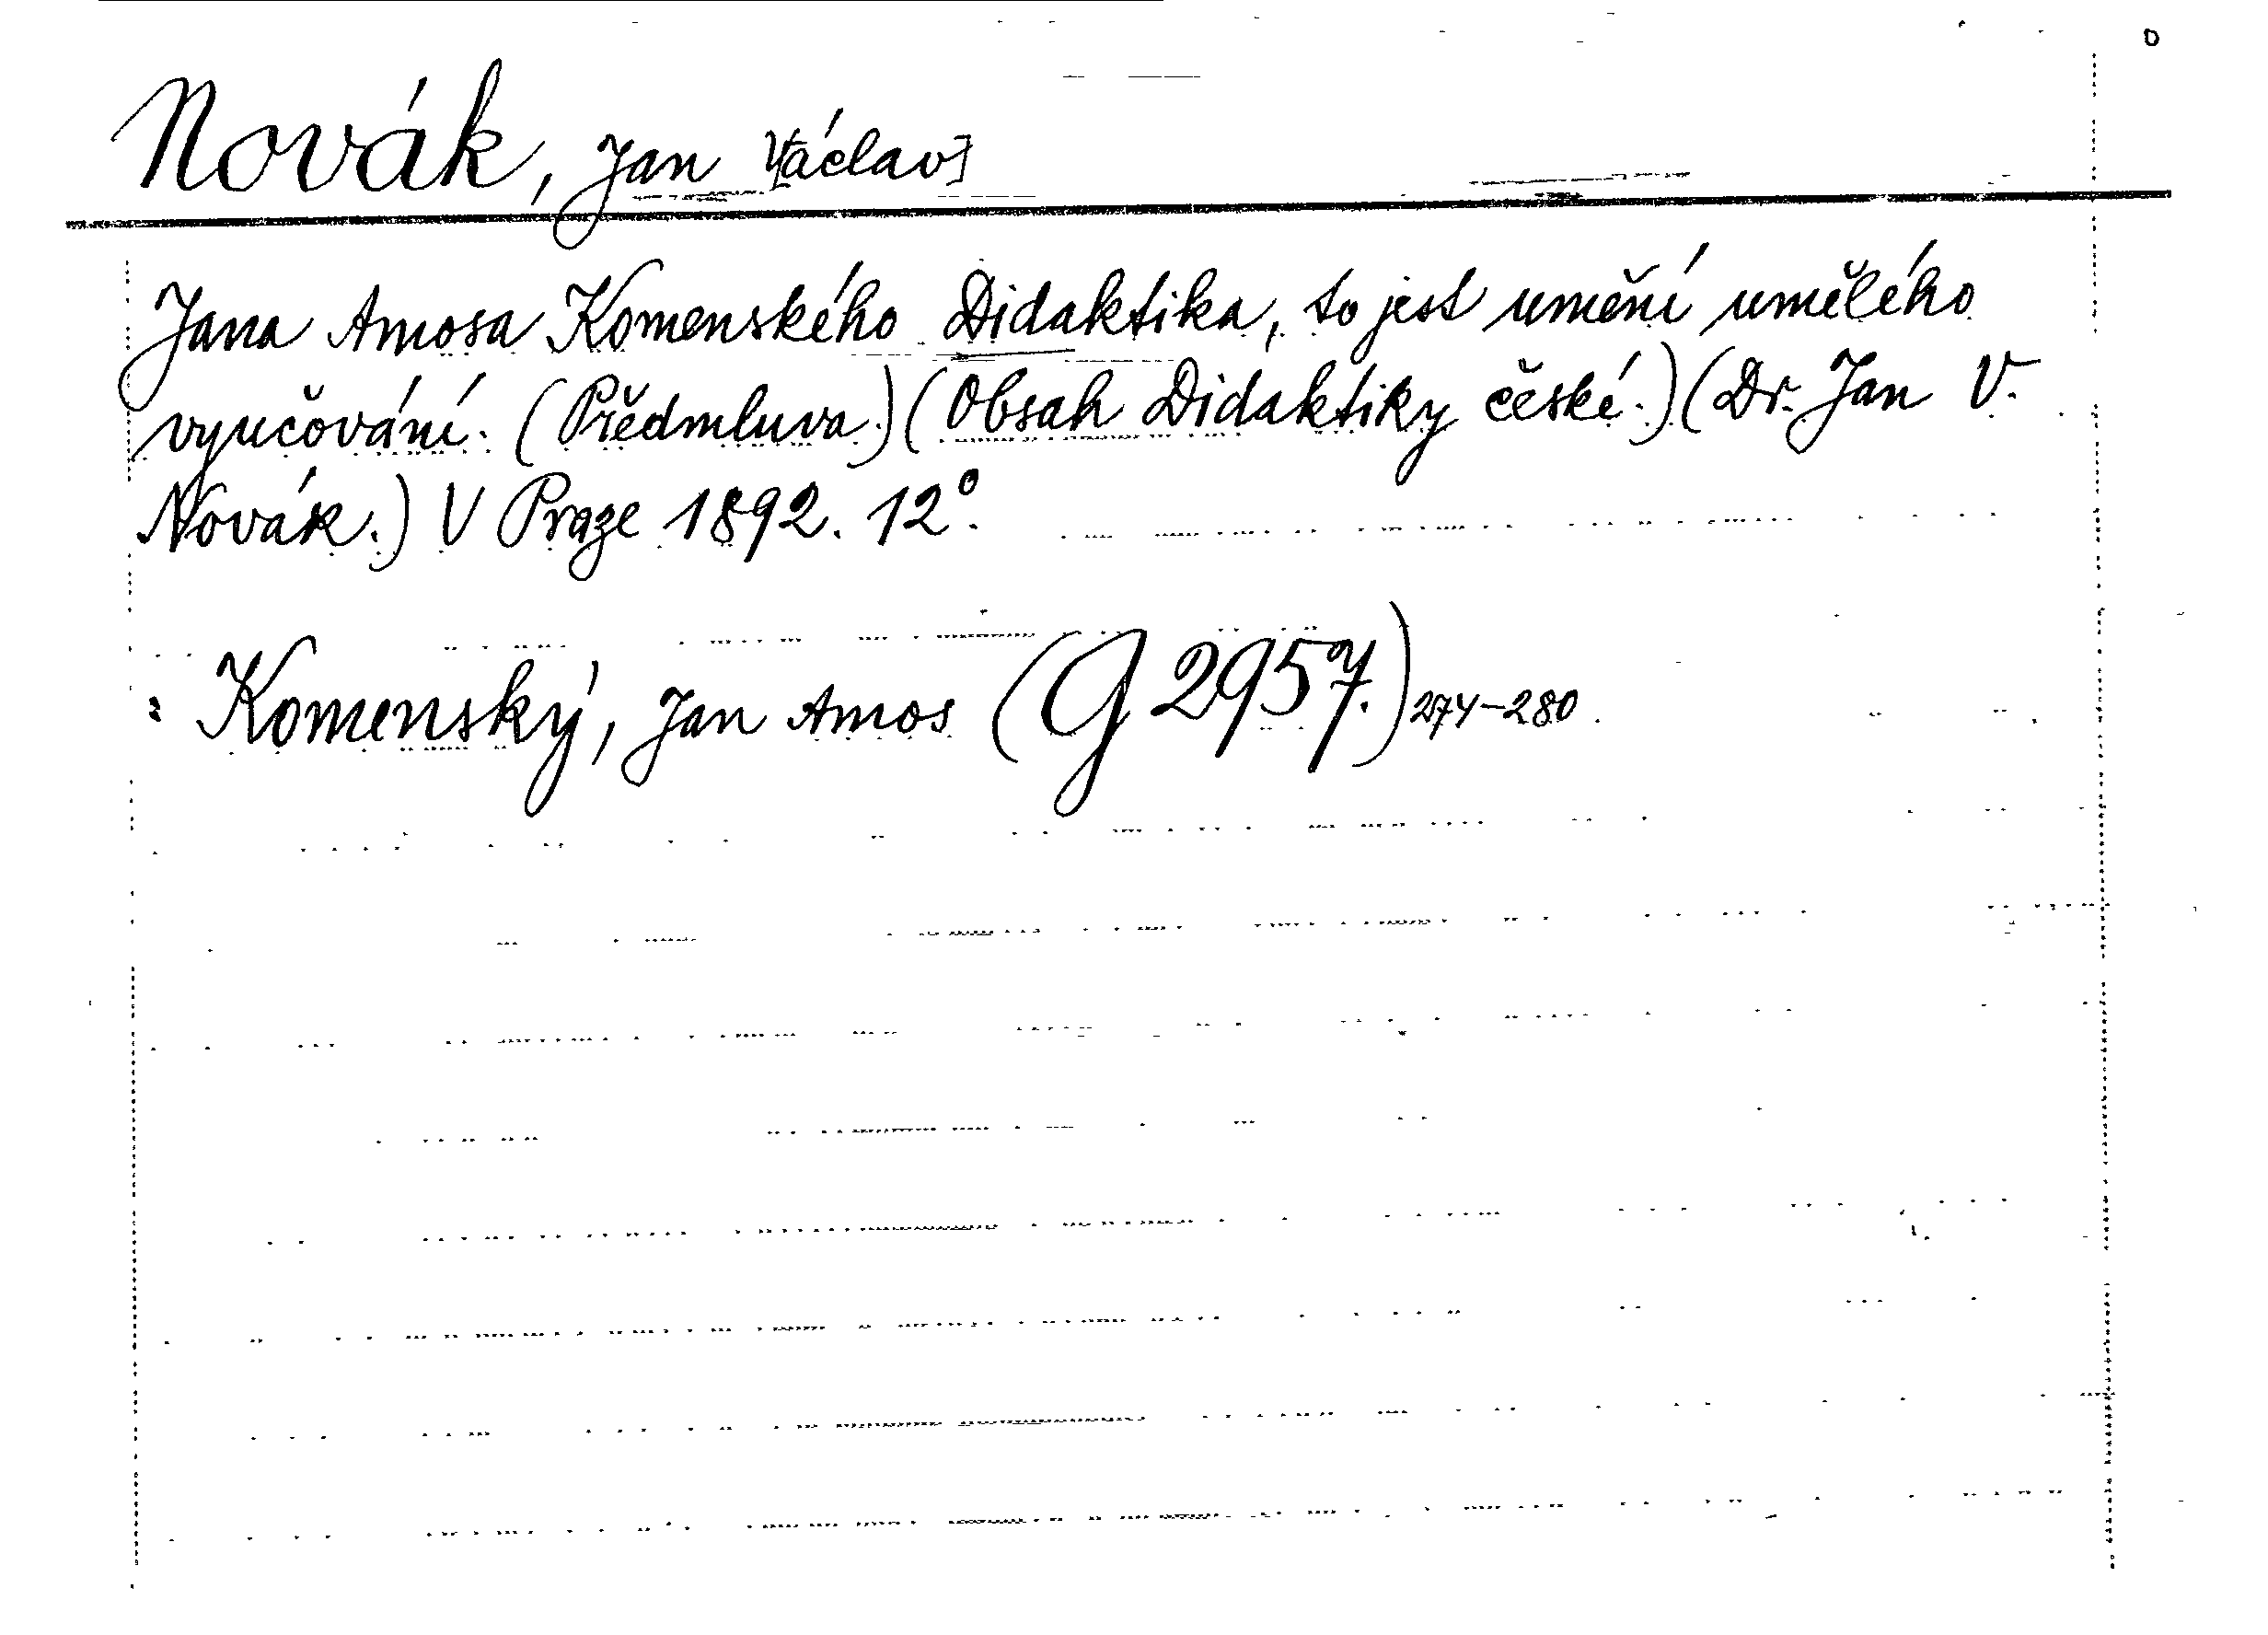 Novák, Jan V[áclav]
Jana Amosa Komenského Didaktika, to jest umění umělého
vyučování. (Předmluva.) (Obsah Didaktiky české.) (Dr. Jan V.
Novák.) V Praze 1892. 12°.
: Komenský, Jan Amos (G 2957.) 274-280.